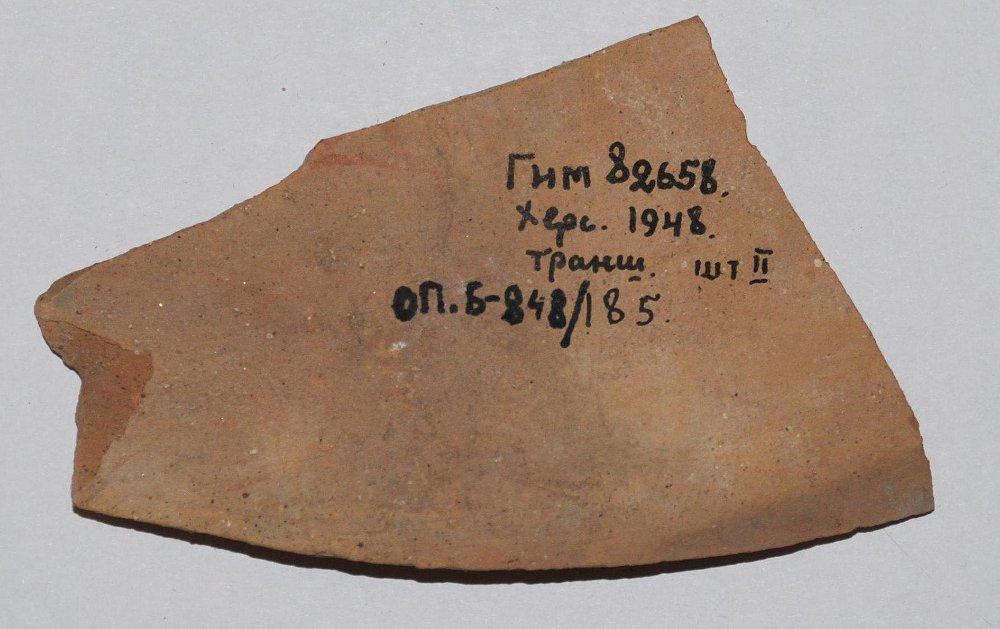 Гим 82658.
Херс. 1948.
Транш. шт II
оп. Б-848/185.